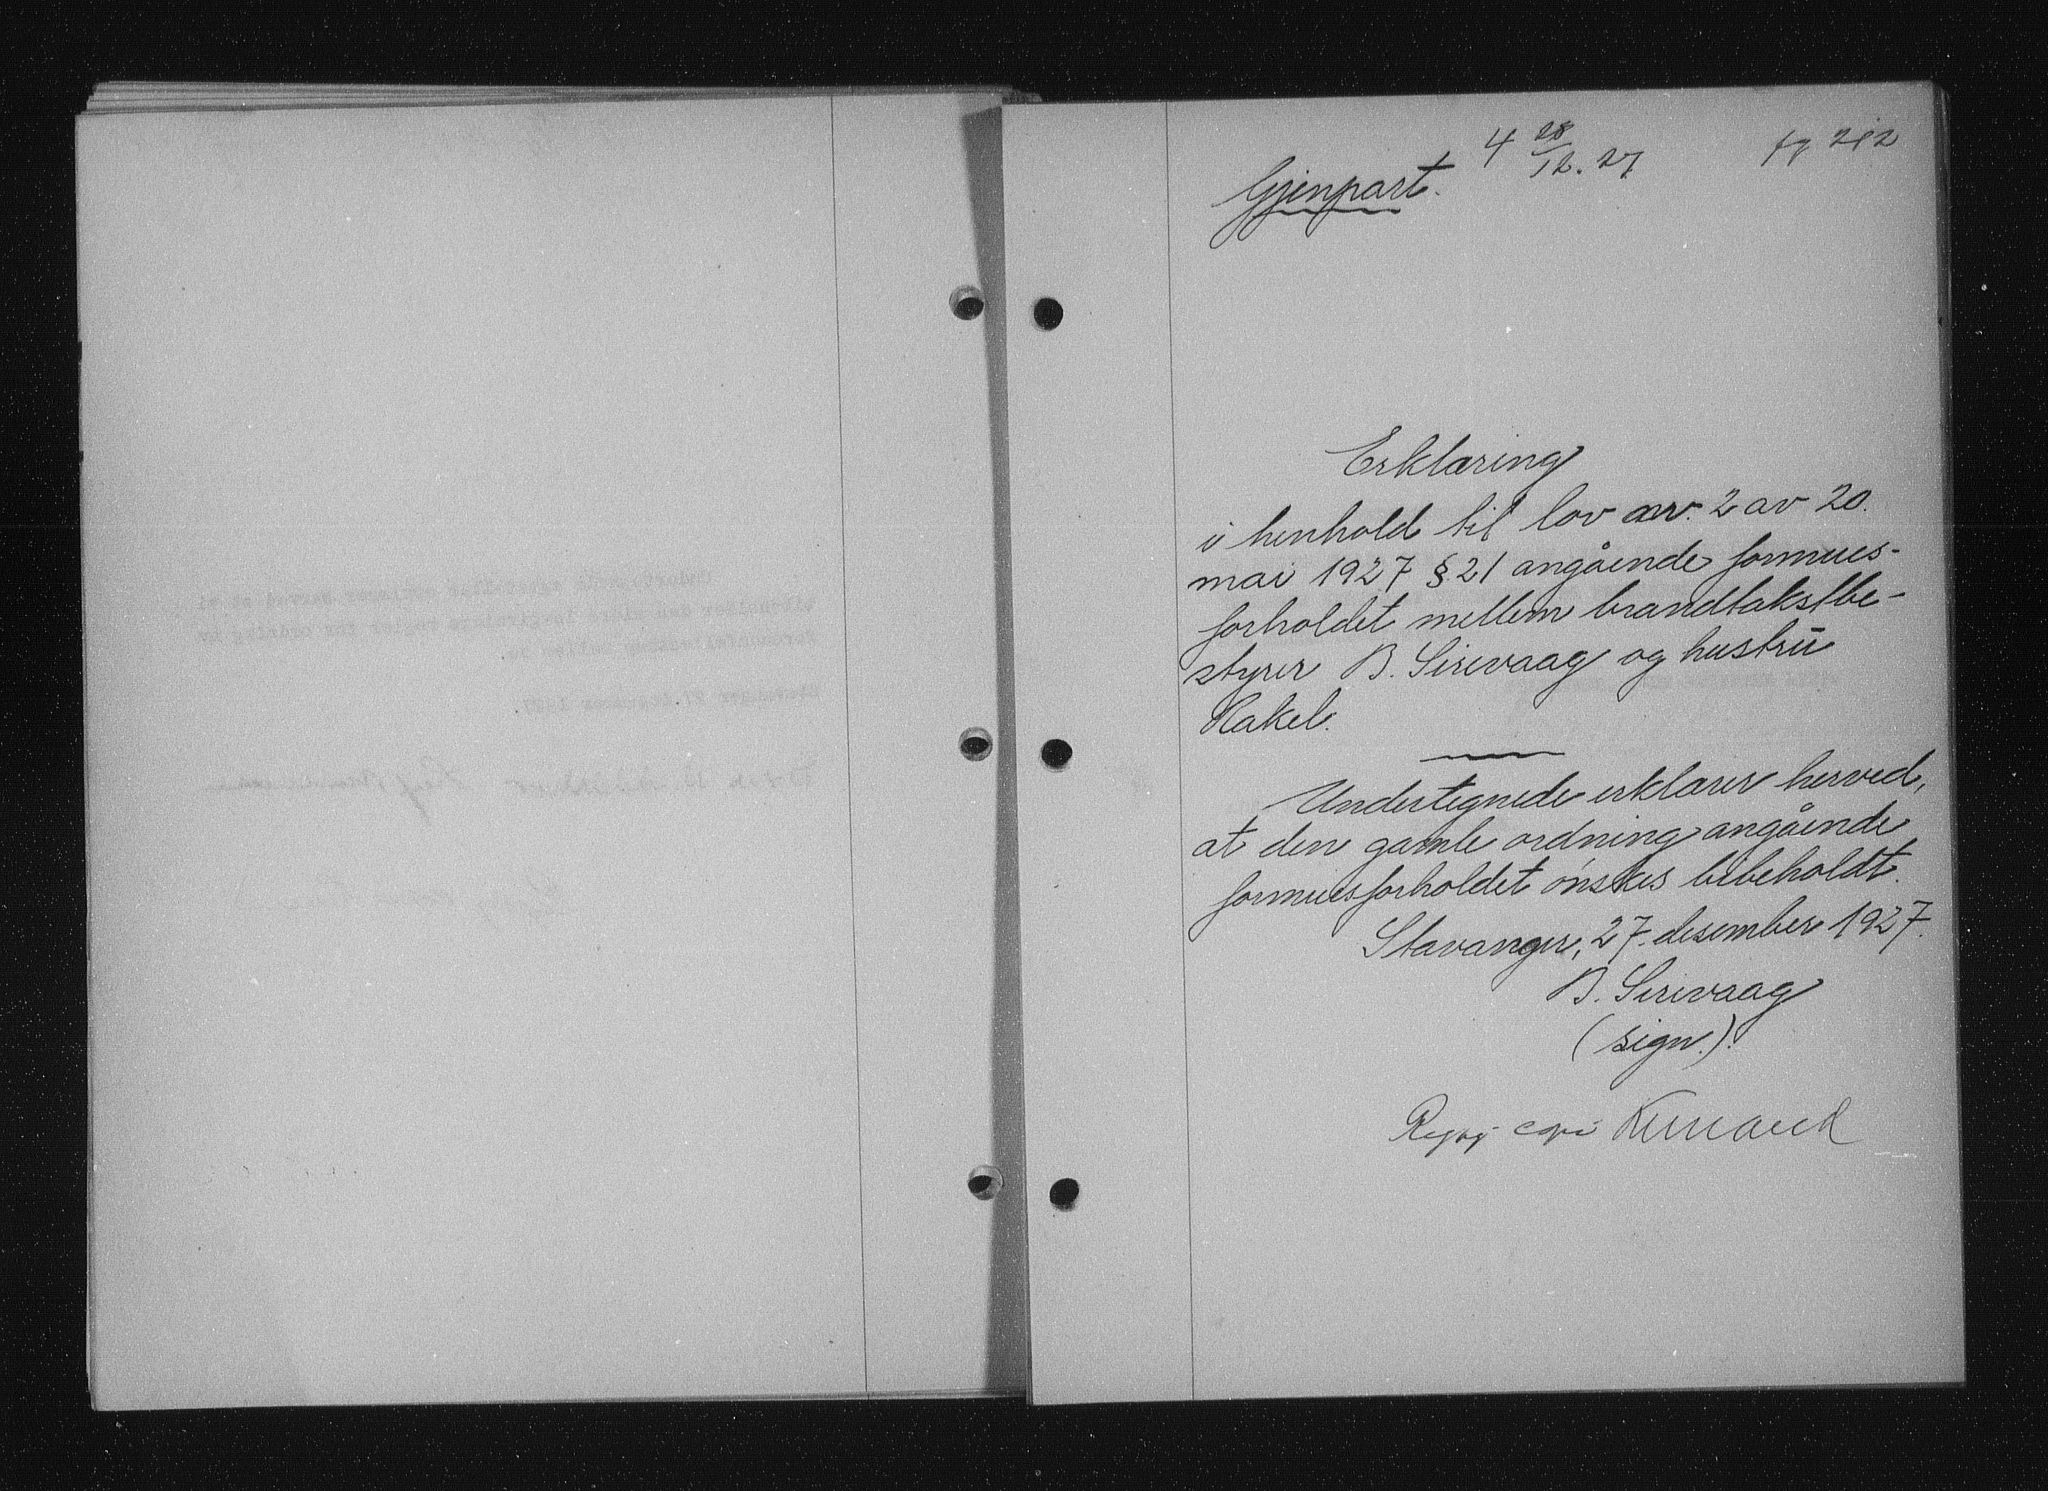 4 28/12.27
Gjenpart.
Erklæring
i henhold til lov nr. 2 av 20.
mai 1927 § 21 angående formues-
forholdet mellem brandtakstbe-
styrer B. Sirevaag og hustru
Rakel.
Undertegnede erklærer herved,
at den gamle ordning angående
formuesforholdet ønskes bibeholdt.
Stavanger, 27. desember 1927.
B. Sirevaag
(sign.).